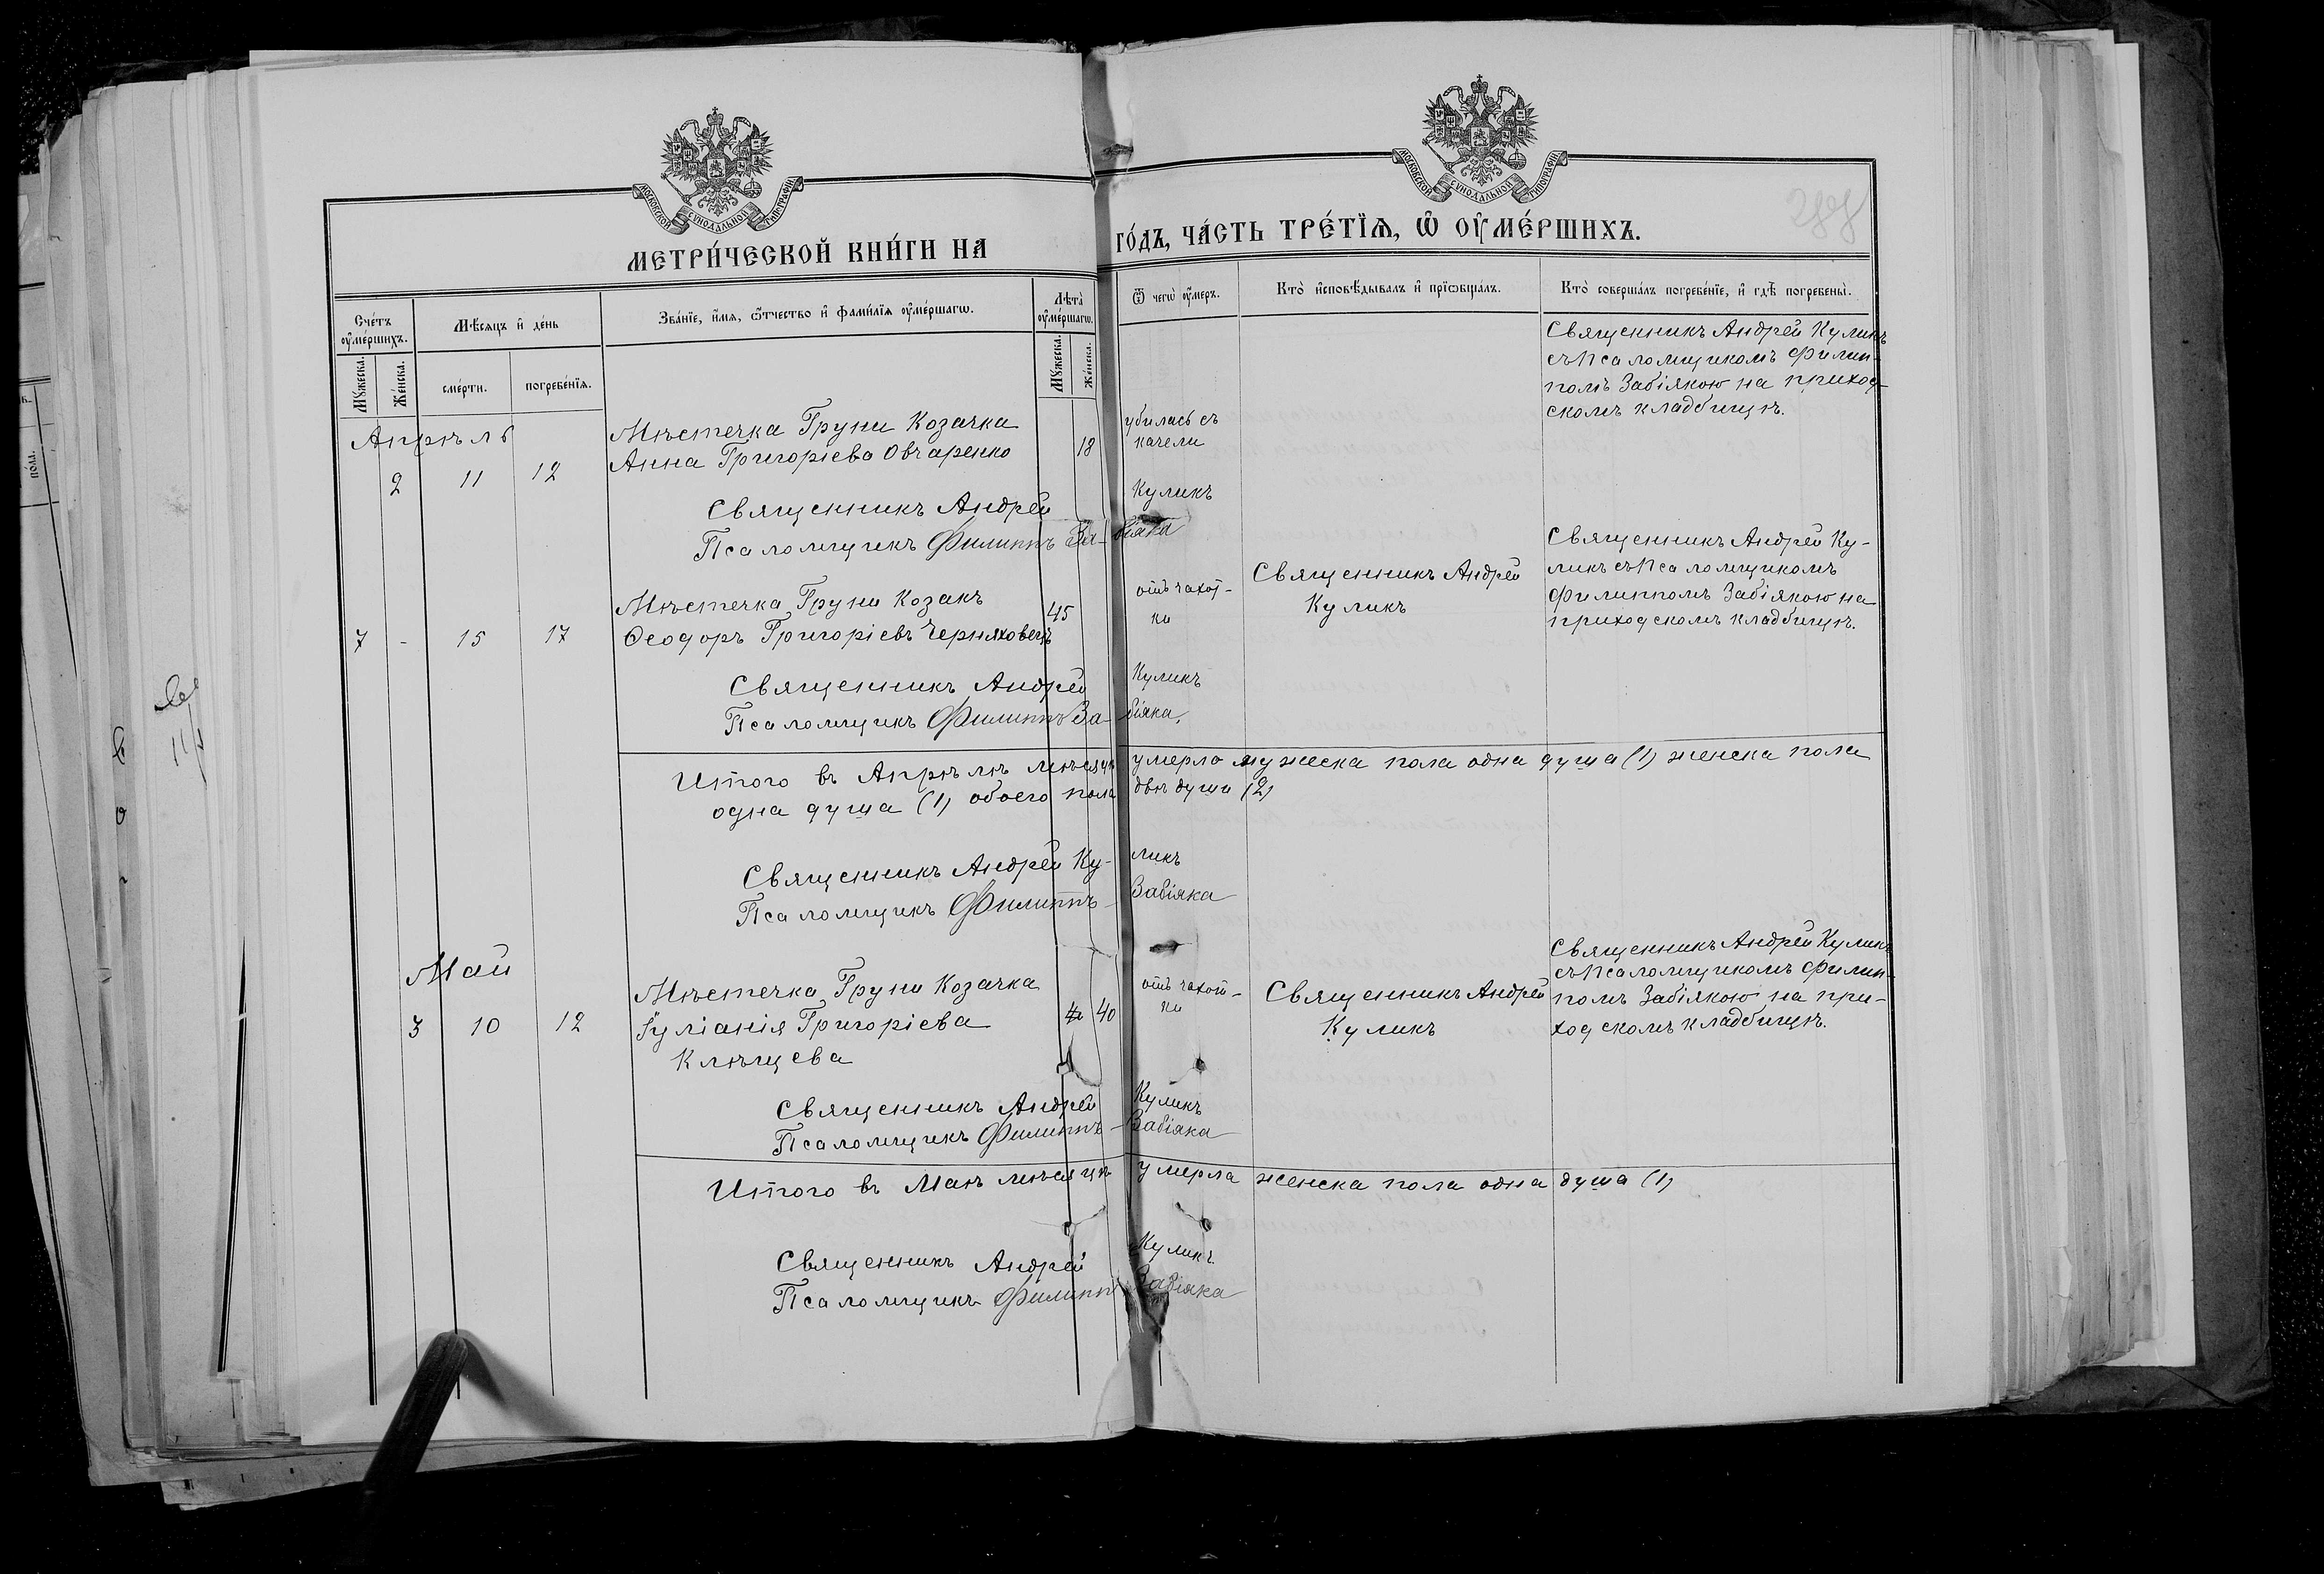 МОСКОВСКОЙ СѴНОДАЛЬНОЙ ТИПОГРАФІИ
МОСКОВСКОЙ СѴНОДАЛЬНОЙ ТИПОГРАФІИ
МЕТРИ́ЧЕСКОЙ КНИ́ГИ НА ГО́ДЪ, ЧА́СТЬ ТРЕ́ТЇѦ, Ѡ҆ ОУ҆МЕ́РШИХЪ.
Сче́тъ оу҆ме́ршихъ.
Мѣ́сяцъ и҆ де́нь
Зва́нїе, и҆́мя, ѻ҆́тчество и҆ фами́лїя оу҆ме́ршагѡ.
Лѣта̀ оу҆ме́ршагѡ.
Ѿ чегѡ̀ оу҆́меръ.
Кто̀ и҆сповѣ́дывалъ и҆ прїѡбща́лъ.
Кто̀ соверша́лъ погребе́нїе, и҆ гдѣ̀ погребены̀.
Мꙋ́жеска.
Же́нска.
сме́рти.
погребе́нїя.
Мꙋ́жеска.
Же́нска.
Апрѣль
2 11 12
Мѣстечка Груни Козачка
Анна Григоріева Овчаренко
18
убилась съ
качели
Священникъ Андрей Куликъ
съ Псаломщикомъ Филип-
помъ Забіякою на приход-
скомъ кладбищѣ.
Священникъ Андрей Куликъ
Псаломщикъ Филиппъ За-біяка
7 - 15 17
Мѣстечка Груни Козакъ
Ѳеодоръ Григоріевъ Черняховецъ
45
отъ чахот-
ки
Священникъ Андрей
Куликъ
Священникъ Андрей Ку-
ликъ съ Псаломщикомъ
Филиппомъ Забіякою на
приходскомъ кладбищѣ.
Священникъ Андрей Куликъ
Псаломщикъ Филиппъ За-біяка.
Итого въ Апрѣлѣ мѣсяцѣ умерло мужеска пола одна душа (1) женска пола
одна душа (1) обоего пола двѣ души (2)
Священникъ Андрей Ку-ликъ
Псаломщикъ Филиппъ Забіяка
Май
3 10 12
Мѣстечка Груни Козачка
Іуліанія Григоріева
Клѣщева
40
отъ чахот-
ки
Священникъ Андрей
Куликъ
Священникъ Андрей Куликъ
съ Псаломщикомъ Филип-
помъ Забіякою на при-
ходскомъ кладбищѣ.
Священникъ Андрей Куликъ
Псаломщикъ Филиппъ Забіяка
Итого въ Маѣ мѣсяцѣ умерла женска пола одна душа (1)
Священникъ Андрей Куликъ
Псаломщикъ Филиппъ Забіяка